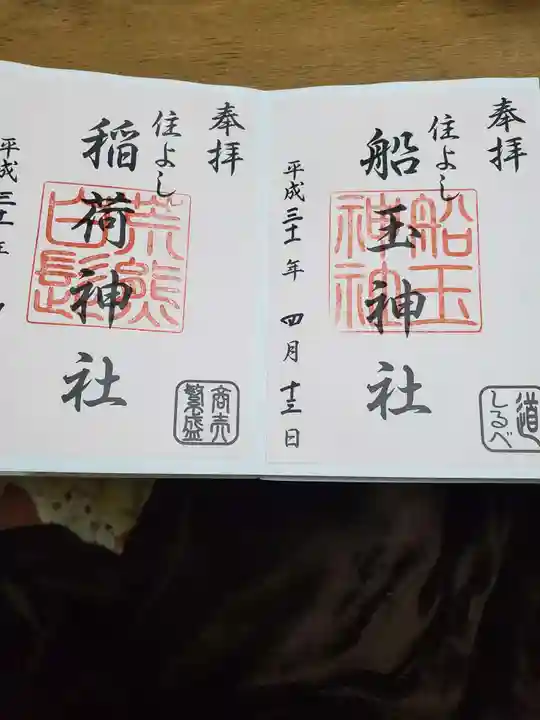 奉拝
住よし
船玉神社
船玉神社
平成三十一年 四月十三日
道しるべ
奉拝
住よし
稲荷神社
荒熊白髭
商売繁盛
平成三十一年